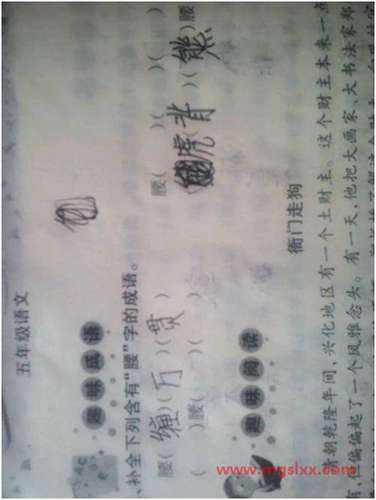 五年级语文
趣味成语
、补全下列含有“腰”字的成语。
腰(缠)(万)(贯) 腰( )( )( )
( )腰( )( ) (虎)(背)(熊)腰
趣味阅读
衙门走狗
朝乾隆年间,兴化地区有一个土财主。这个财主本来一点
有,但偏偏起了一个风雅念头。有一天,他把大画家、大书法家郑
www.mgslxx.com